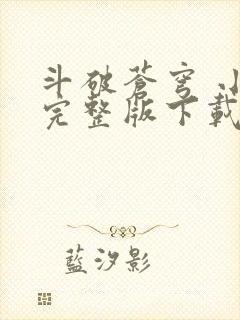 斗破蒼穹
完整版下載
藍汐影